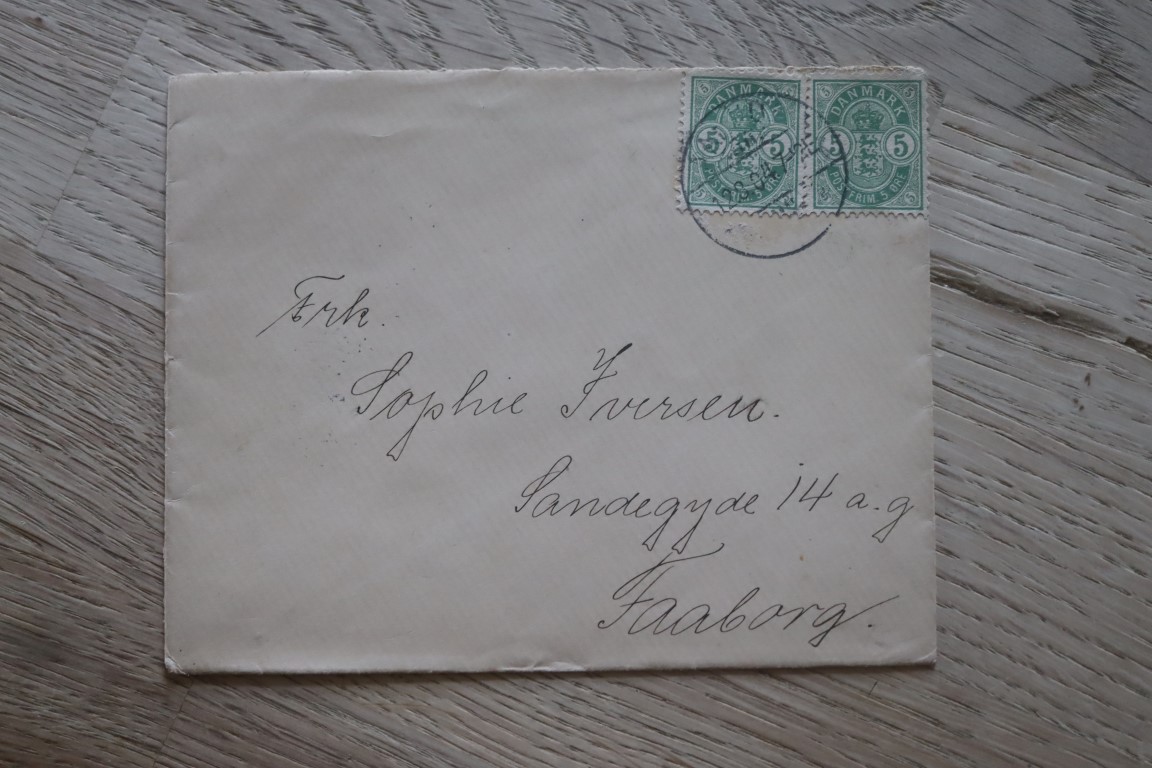 DANMARK
5 5
POSTFRIM. 5 ØRE
DANMARK
5 5
POSTFRIM. 5 ØRE
Frk.
Sophie Iversen.
Sandegyde 14 a.g
Faaborg.